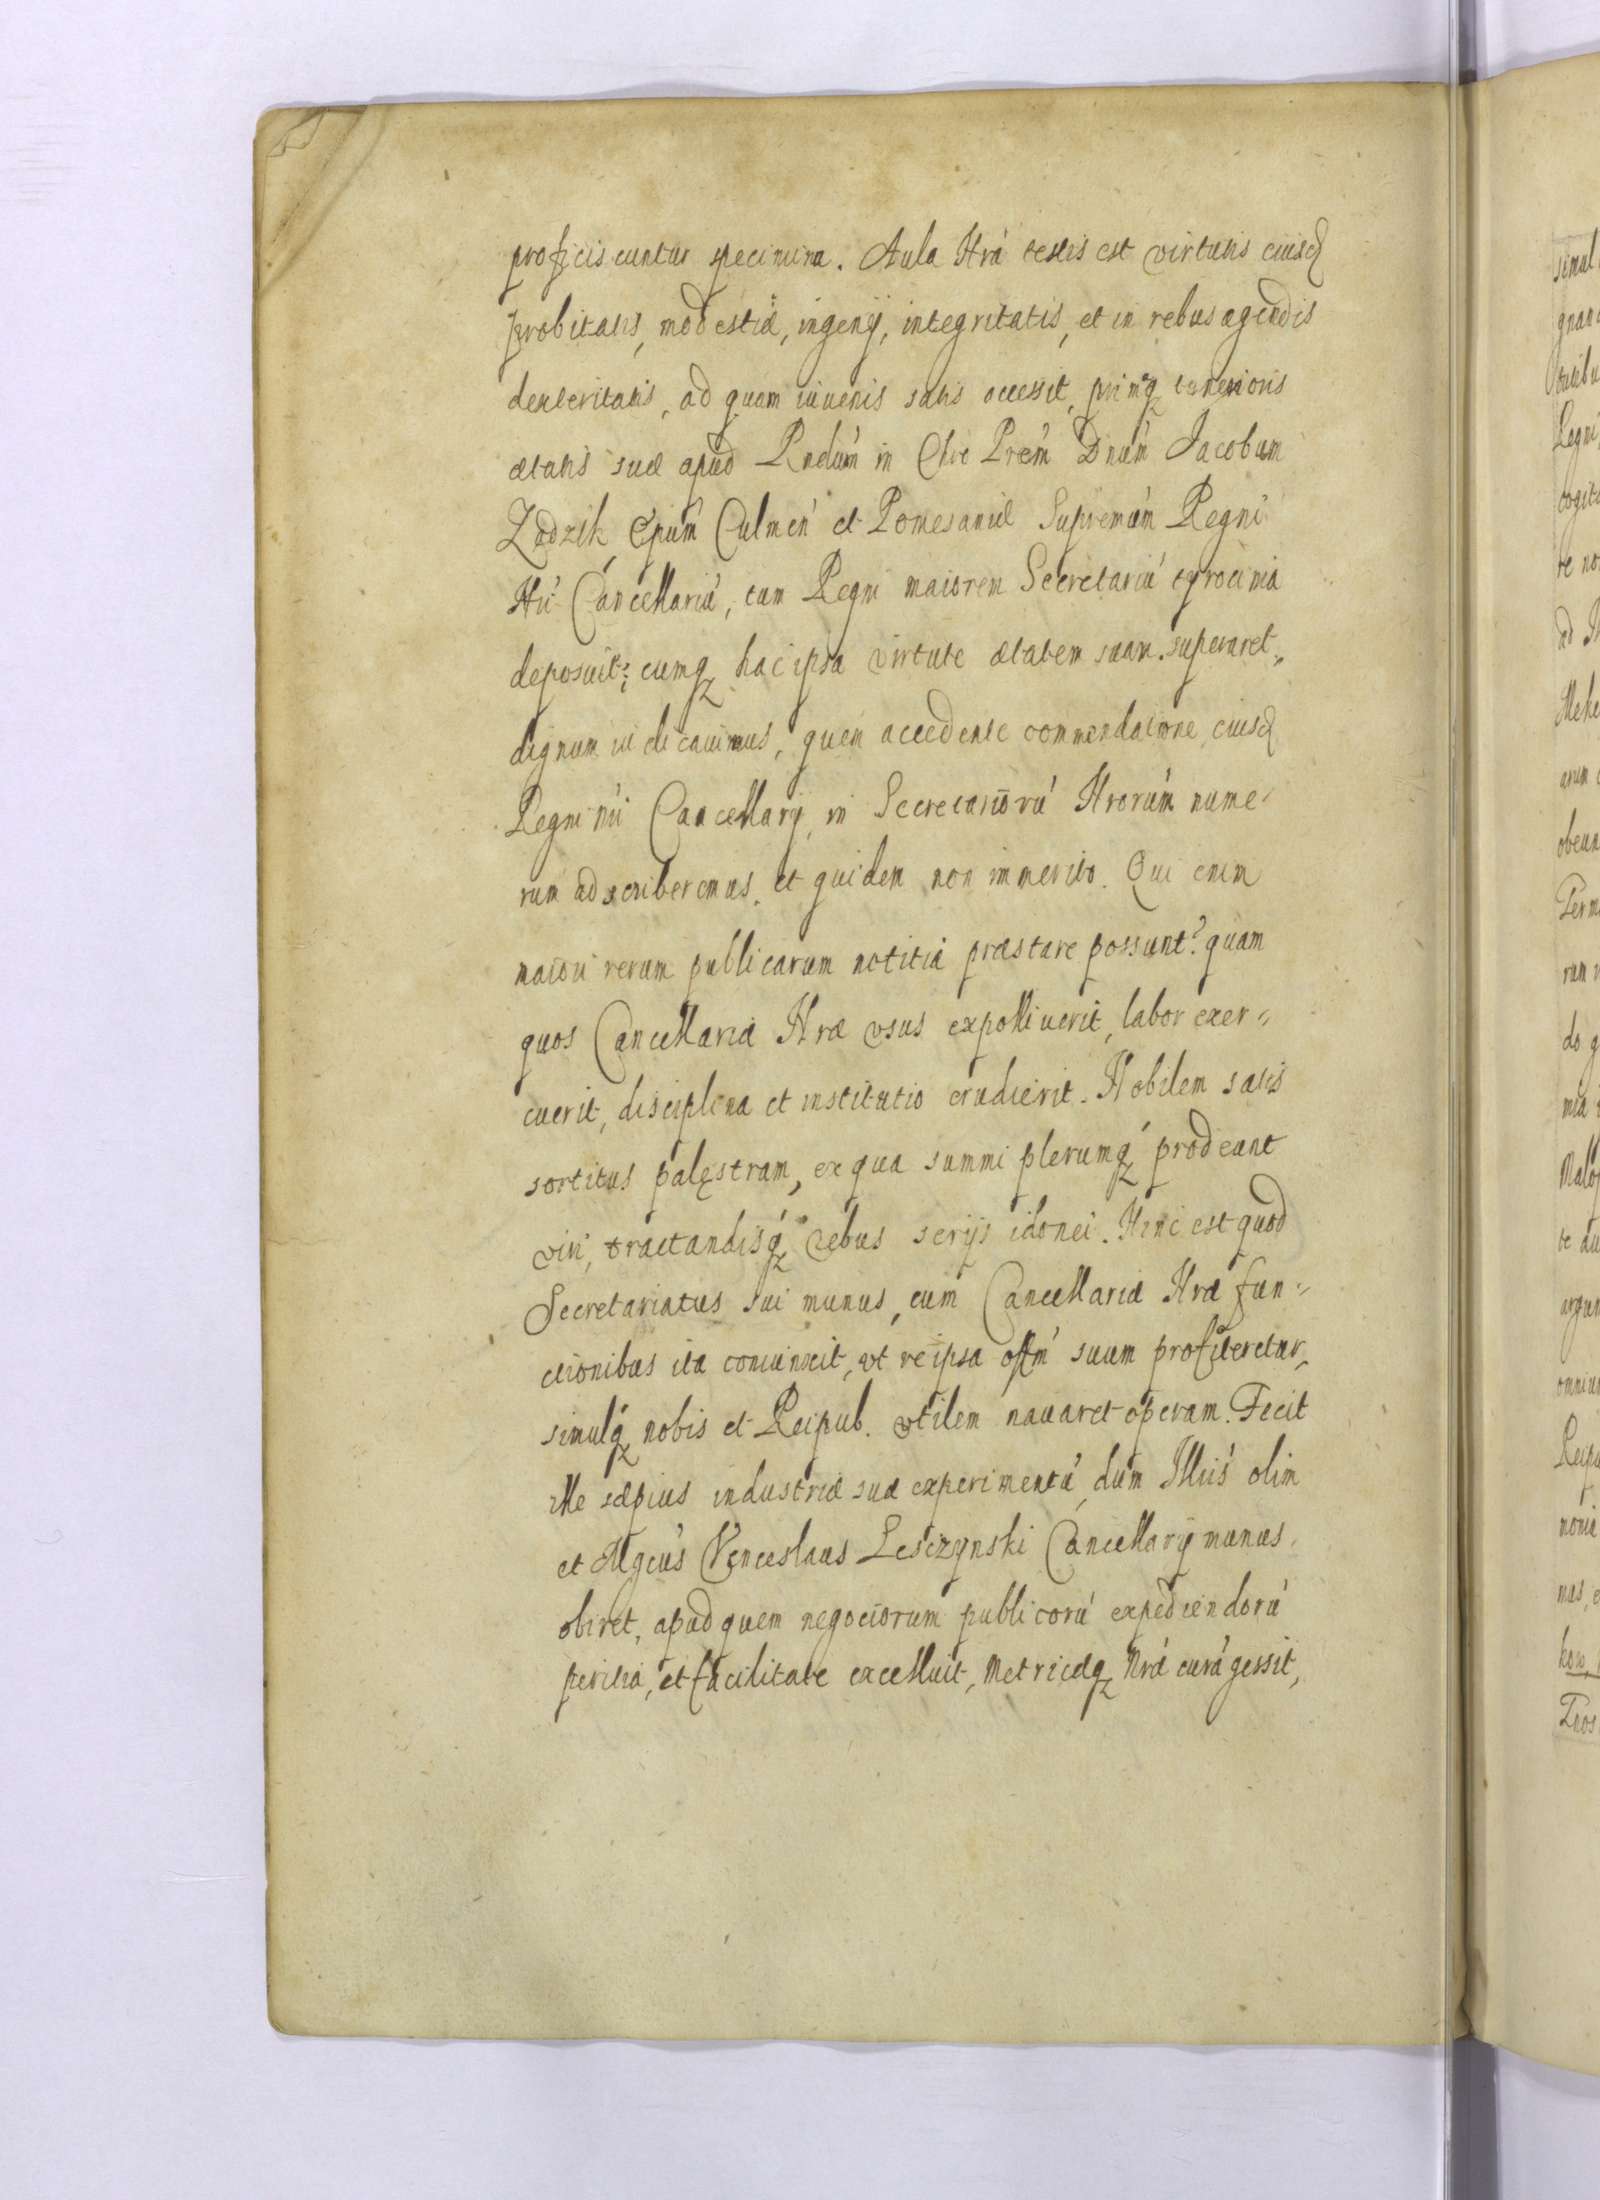 proficiscuntur specimina. Aula Nrá testis est virtutis eiusd
probitatis, modestiæ, ingenij, integritatis, et in rebus agendis
dexteritatis, ad quam iuvenis satis accessit, primq teneri­oris
ætatis suæ apud Rndúm in Chro Prem Dnúm Jacobum
Zadzik Epúm Culmen et Pomesaniæ Supremúm Regni
Nri Cancellariú, tum Regni maiorem Secretariú tyrocinia
deposuit; cumq hac ipsa virtute ætatem suam superaret,
dignum iudicauimus, quem accedente commendatione eiusd
Regni nri Cancellarij in Secretariorú Nrorúm nume-
rum adscriberemus, et quidem non immerito. Qui enim
maiori rerum publicarum notitiá præstare possunt? quam
quos Cancellariæ Nræ vsus expolliuerit, labor exer=
cuerit, disciplina et institutio erudierit. Nobilem satis
sortitus palęstram, ex qua summi plerumq prodeunt
viri, tractandisq rebus serijs idonei. Hinc est quod
Secretariatus sui munus, cum Cancellariæ Nræ fun=
ctionibus ita coniunxit, vt reipsa offm suum profiteretur,
simulq nobis et Reipub. vtilem nauaret operam. Fecit
ille sæpius industriæ suæ experimentú, dum Illris olim
et Mgcus Venceslaus Lesczynski Cancellarij munus
obiret, apud quem negociorum publicorú expediendorú
peritiá, et facilitate excelluit, Metricæq Nræ curá gessit,
simul
Regni
cogit
te no
ad
arum
obeun
Perm
rum
do
Malo
te
argum
omniu
Reipu
monia
mus,
kow,